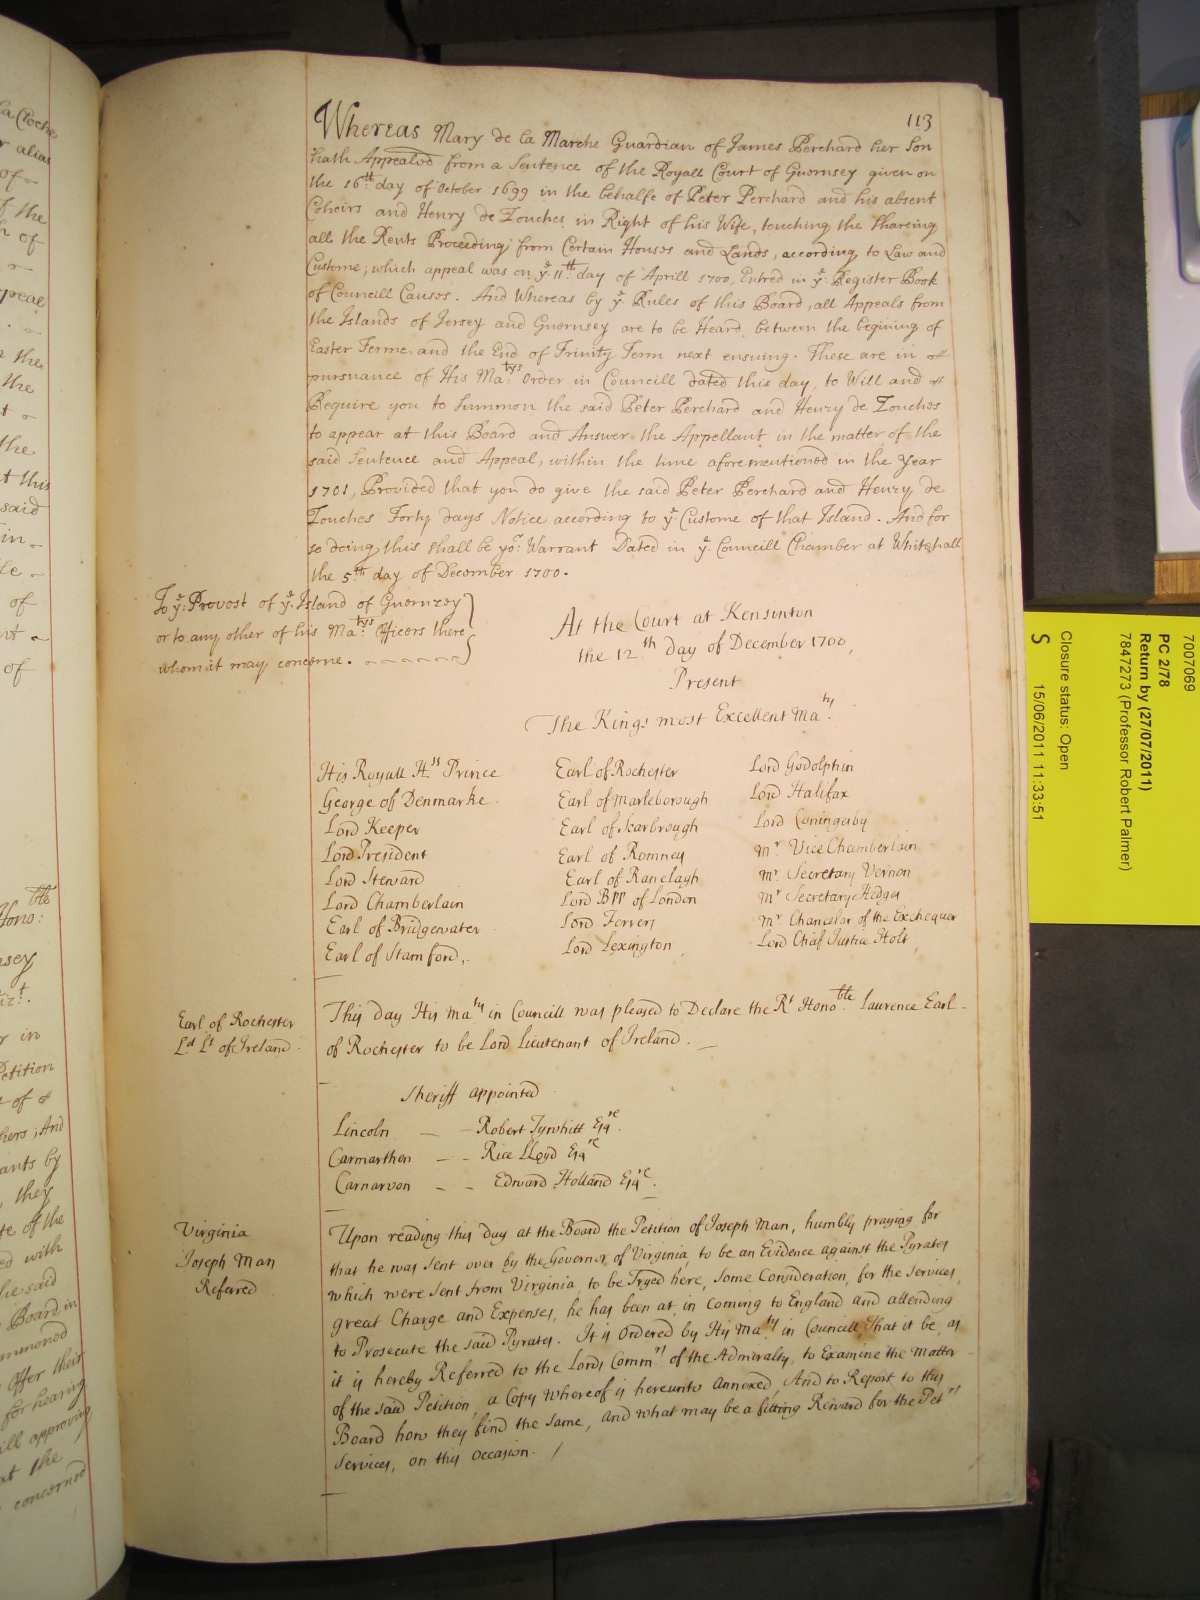 113
Whereas Mary de la Marche Guardian of James Perchard her Son
hath Appealed from a Sentence of the Royall Court of Guernsey given on
the 16th day of October 1699 in the behalfe of Peter Perchard and his absent
Coheirs and Henry de Touches in Right of his Wife, touching the Shareing
all the Rents Proceeding from Certain Houses and Lands, according to Law and
Custome; which appeal was on ye 11th day of Aprill 1700, Entred in ye Register Book
of Councill Causes. And Whereas by ye Rules of this Board, all Appeals from
the Islands of Jersey and Guernsey are to be Heard between the begining of
Easter Terme and the End of Trinity Term next ensuing. These are in
pursuance of His Matys Order in Councill dated this day, to Will and
Require you to Summon the said Peter Perchard and Henry de Touches
to appear at this Board and Answer the Appellant in the matter of the
said Sentence and Appeal, within the time aforementioned in the Year
1701, Provided that you do give the said Peter Perchard and Henry de
Touches Forty days Notice according to ye Custome of that Island. And for
so doing this shall be yor Warrant Dated in ye Councill Chamber at Whitehall
the 5th day of December 1700.
To ye Provost of ye Island of Guernzey
or to any other of his Matys Officers there
whom it may concerne.
At the Court at Kensinton
the 12th day of December 1700,
Present
The Kings most Excellent Maty.
His Royall Hss Prince
George of Denmarke
Lord Keeper
Lord President
Lord Steward
Lord Chamberlain
Earl of Bridgewater
Earl of Stamford,
Earl of Rochester
Earl of Marleborough
Earl of Scarbrough
Earl of Romney
Earl of Ranelagh
Lord Bpp of London
Lord Ferrers
Lord Lexington
Lord Godolphin
Lord Halifax
Lord Coningsby
Mr Vice Chamberlain
Mr Secretary Vernon
Mr Secretary Hedges
Mr Chancelor of the Exchequer
Lord Chief Justice Holt,
Earl of Rochester
Ld Lt of Ireland
This day His Maty in Councill was pleased to Declare the Rt Honoble Laurence Earl
of Rochester to be Lord Lieutenant of Ireland.
Sheriffs appointed
Lincoln — — Robert Tyrwhitt Esqre.
Carmarthen — — Rice Lloyd Esqre
Carnarvon — — Edward Holland Esqre.
Virginia
Joseph Man
Referred
Upon reading this day at the Board the Petition of Joseph Man, humbly praying for
that he was sent over by the Governor of Virginia, to be an Evidence against the Pyrates
which were sent from Virginia, to be Tryed here, some Consideration, for the services,
great Charge and Expenses, he has been at, in coming to England and attending
to Prosecute the said Pyrates. It is Ordered by His Maty in Councill, That it be, as
it is hereby Referred to the Lords Commrs of the Admeralty, to Examine the Matter
of the said Petition, a Copy whereof is hereunto Annexed, And to Report to this
Board how they find the same, and what may be a fitting Reward for the Petrs
services, on this Occasion.
7007069
PC 2/78
Return by (27/07/2011)
7847273 (Professor Robert Palmer)
Closure status: Open
S 15/06/2011 11:33:51